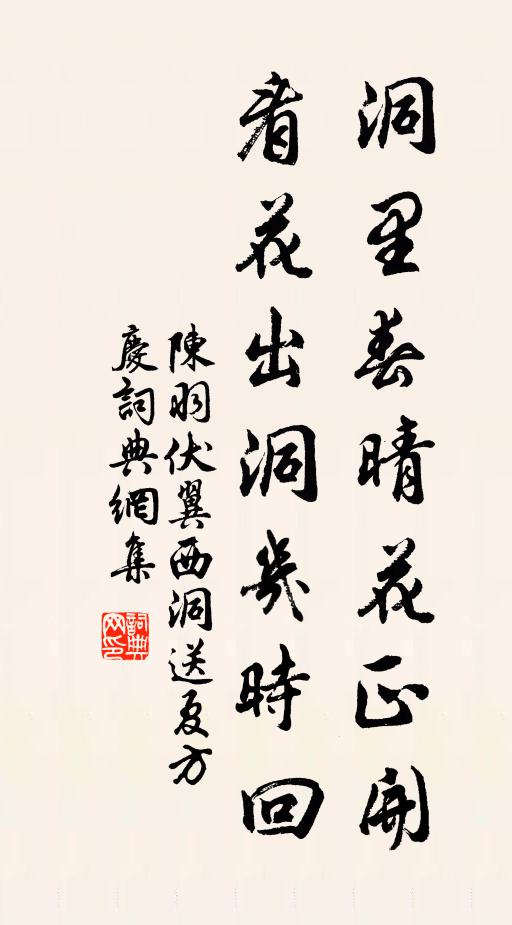 洞里春晴花正開
看花出洞幾時回
陳羽伏翼西洞送夏方
慶詞典網集
詞典网印